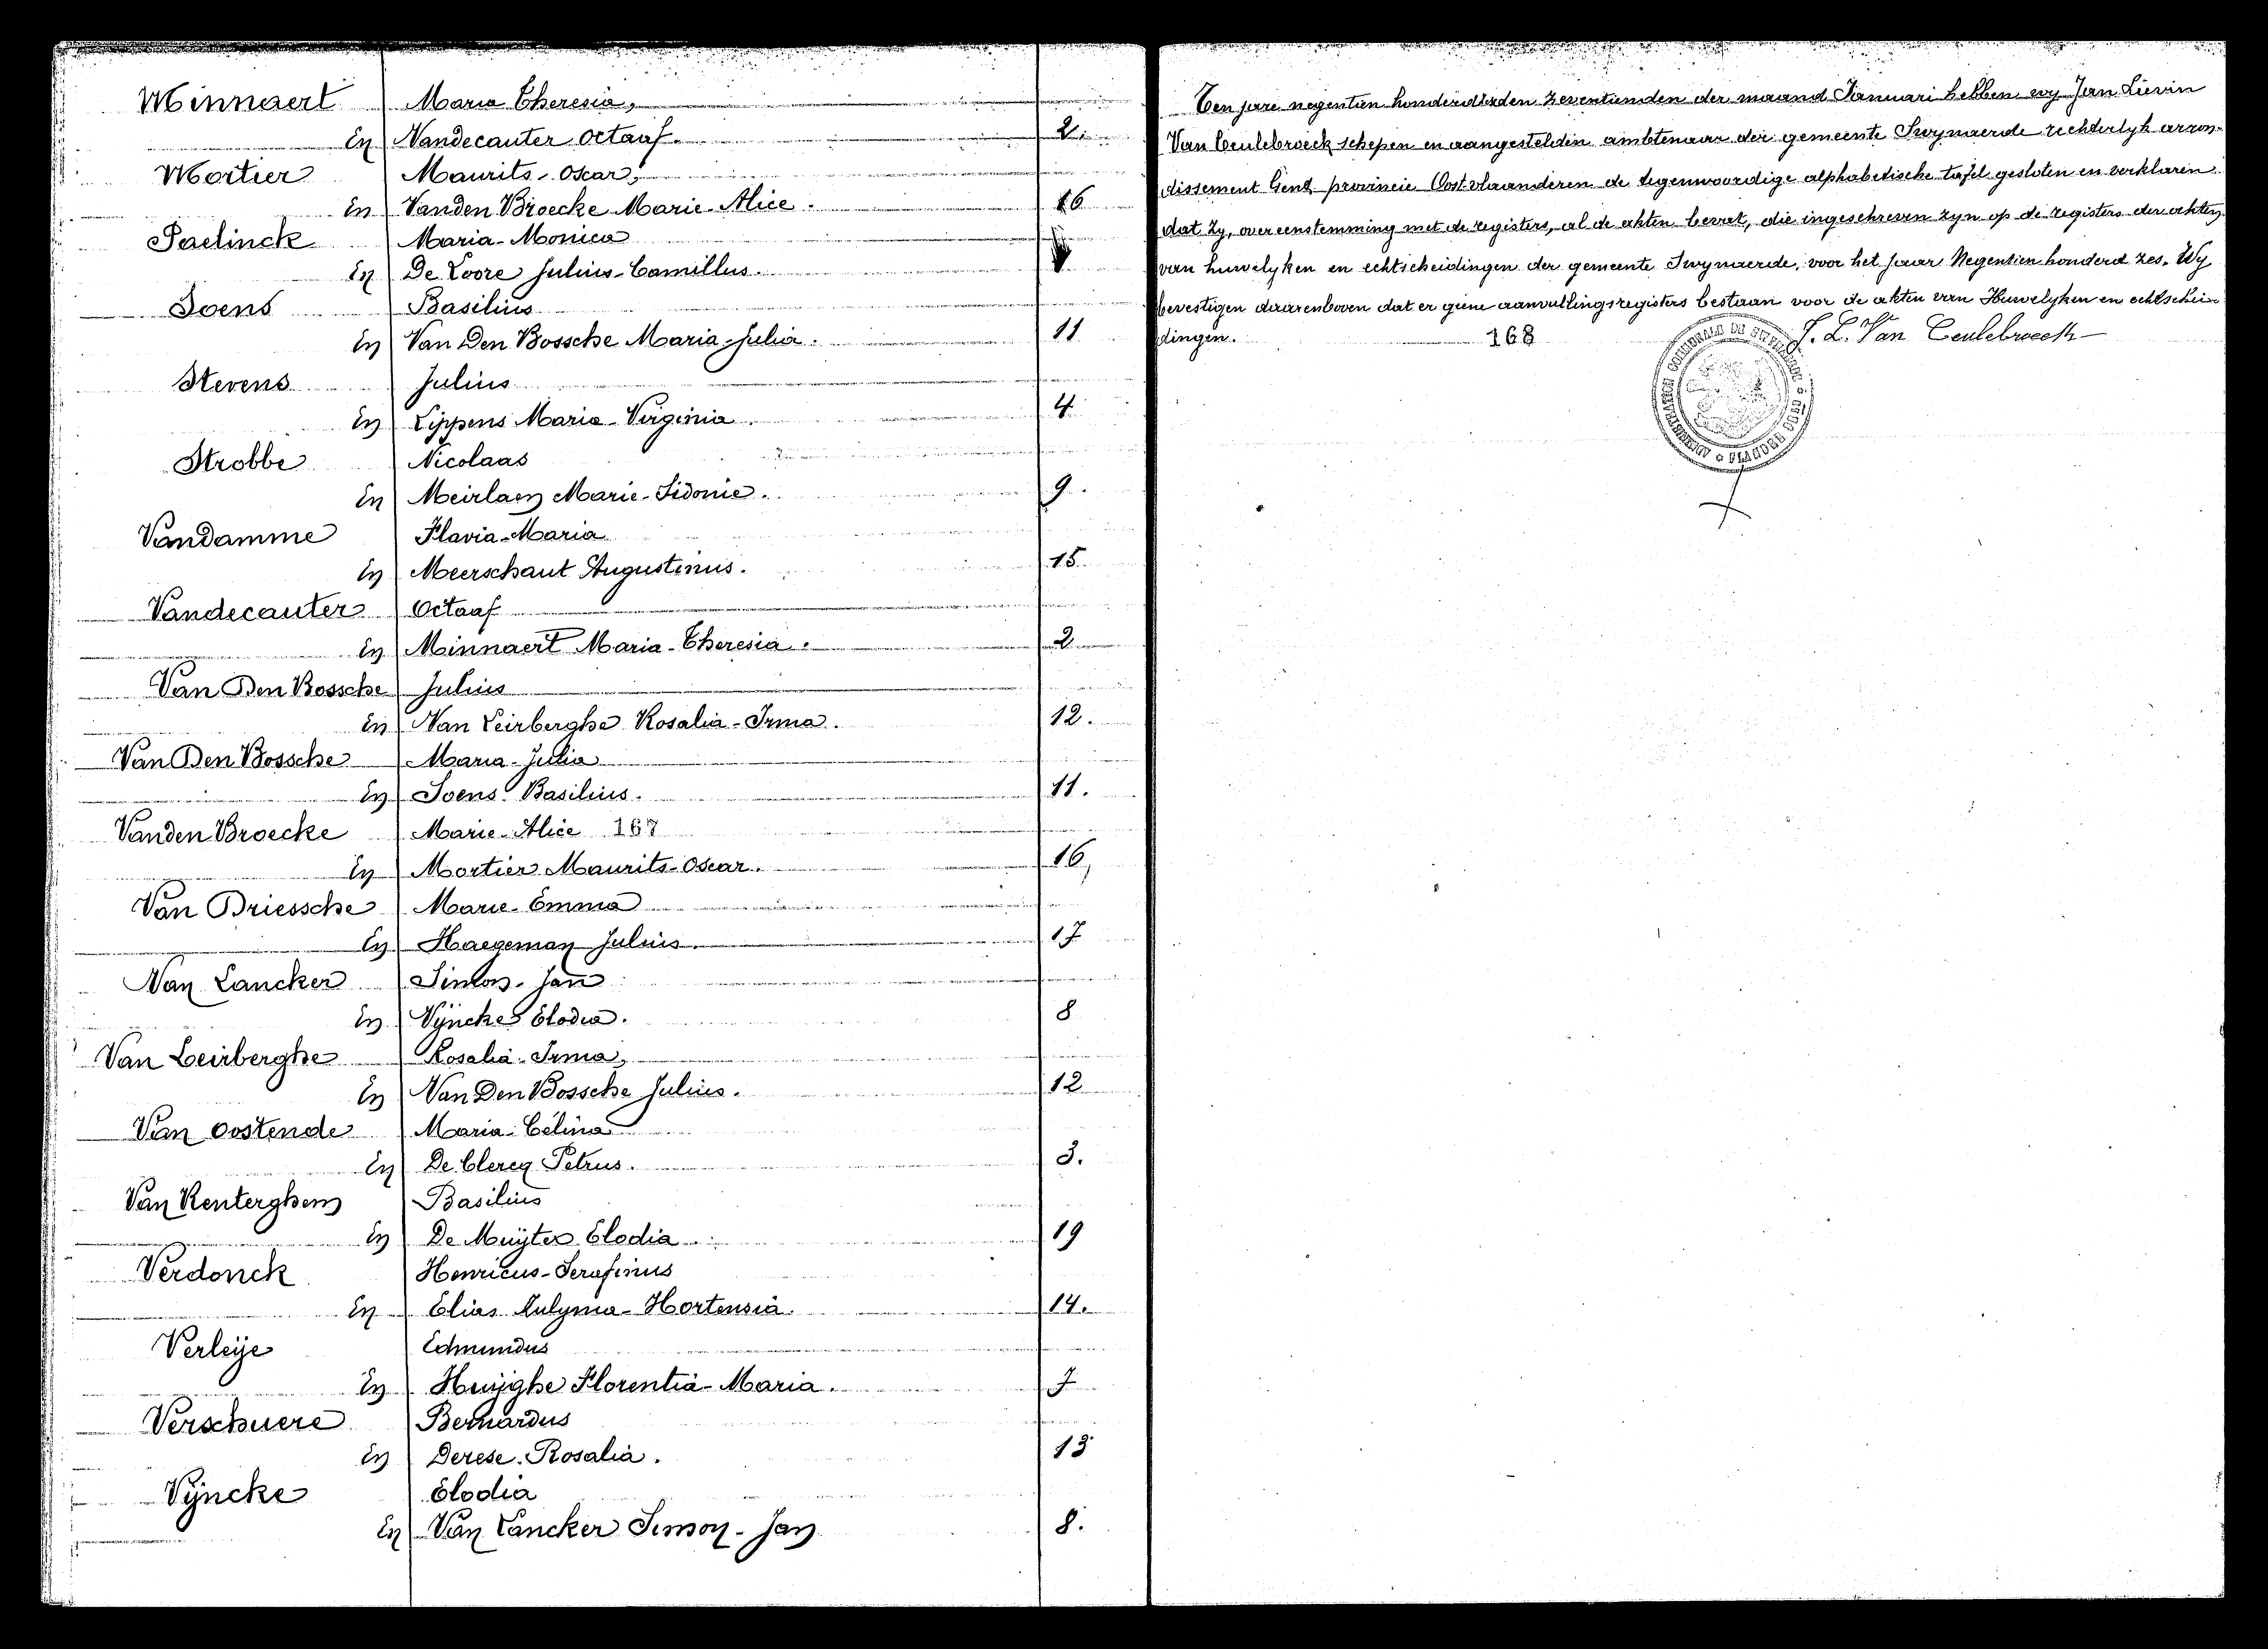 Minnaert Maria Theresia,
En Vandecauter Octaaf. 2.
Mortier Maurits-Oscar,
En Vanden Broecke Marie-Alice. 16
Paelinck Maria-Monica
En De Loore Julius-Camillus.
Soens Basilius
En Van Den Bossche Maria-Julia. 11
Stevens Julius
En Lippens Maria-Virginia. 4
Strobbe Nicolaas
En Meirlaen Marie-Sidonie. 9.
Vandamme Flavia-Maria
En Meerschaut Augustinus. 15
Vandecauter Octaaf
En Minnaert Maria-Theresia. 2
Van Den Bossche Julius
En Van Leirberghe Rosalia-Irma. 12.
Van Den Bossche Maria-Julia
En Soens Basilius. 11.
Vanden Broecke Marie-Alice 167
En Mortier Maurits-Oscar. 16
Van Driessche Marie-Emma
En Haegeman Julius. 17
Van Lancker Simon-Jan
En Vÿncke Elodia. 8
Van Leirberghe Rosalia-Irma,
En Van Den Bossche Julius. 12
Van Oostende Maria-Célina
En De Clercq Petrus. 3.
Van Renterghem Basilius
En De Muÿter Elodia 19
Verdonck Henricus-Serafinus
En Elias Hortensia. 14.
Verleÿe Edmundus
En Huÿghe Florentia-Maria. 7
Verschuere Bernardus
En Derese Rosalia. 13
Vÿncke Elodia
En Van Lancker Simon-Jan 8.
Ten jare negentien honderd zeventienden der maand Januari hebben wy Jan Lievin
Van Ceulebroeck schepen en aangestelden ambtenaar der gemeente Swynaerde rechterlyk arron-
dissement Gent provincie Oost vlaanderen de tegenwoordige alphabetische tafel gesloten en verklaren
dat zy, overeenstemming met de registers, al de akten bevat, die ingeschreven zyn op de registers der akten
van huwelyken en echtscheidingen der gemeente Swynaerde, voor het jaar Negentien honderd zes. Wy
bevestigen daarenboven dat er geene aanvullingsregisters bestaan voor de akten van Huwelyken en echtschei-
dingen. 168 J. L. Van Ceulebroeck
ADMINISTRATION COMMUNALE DE SWYNAERDE
FLANDRE